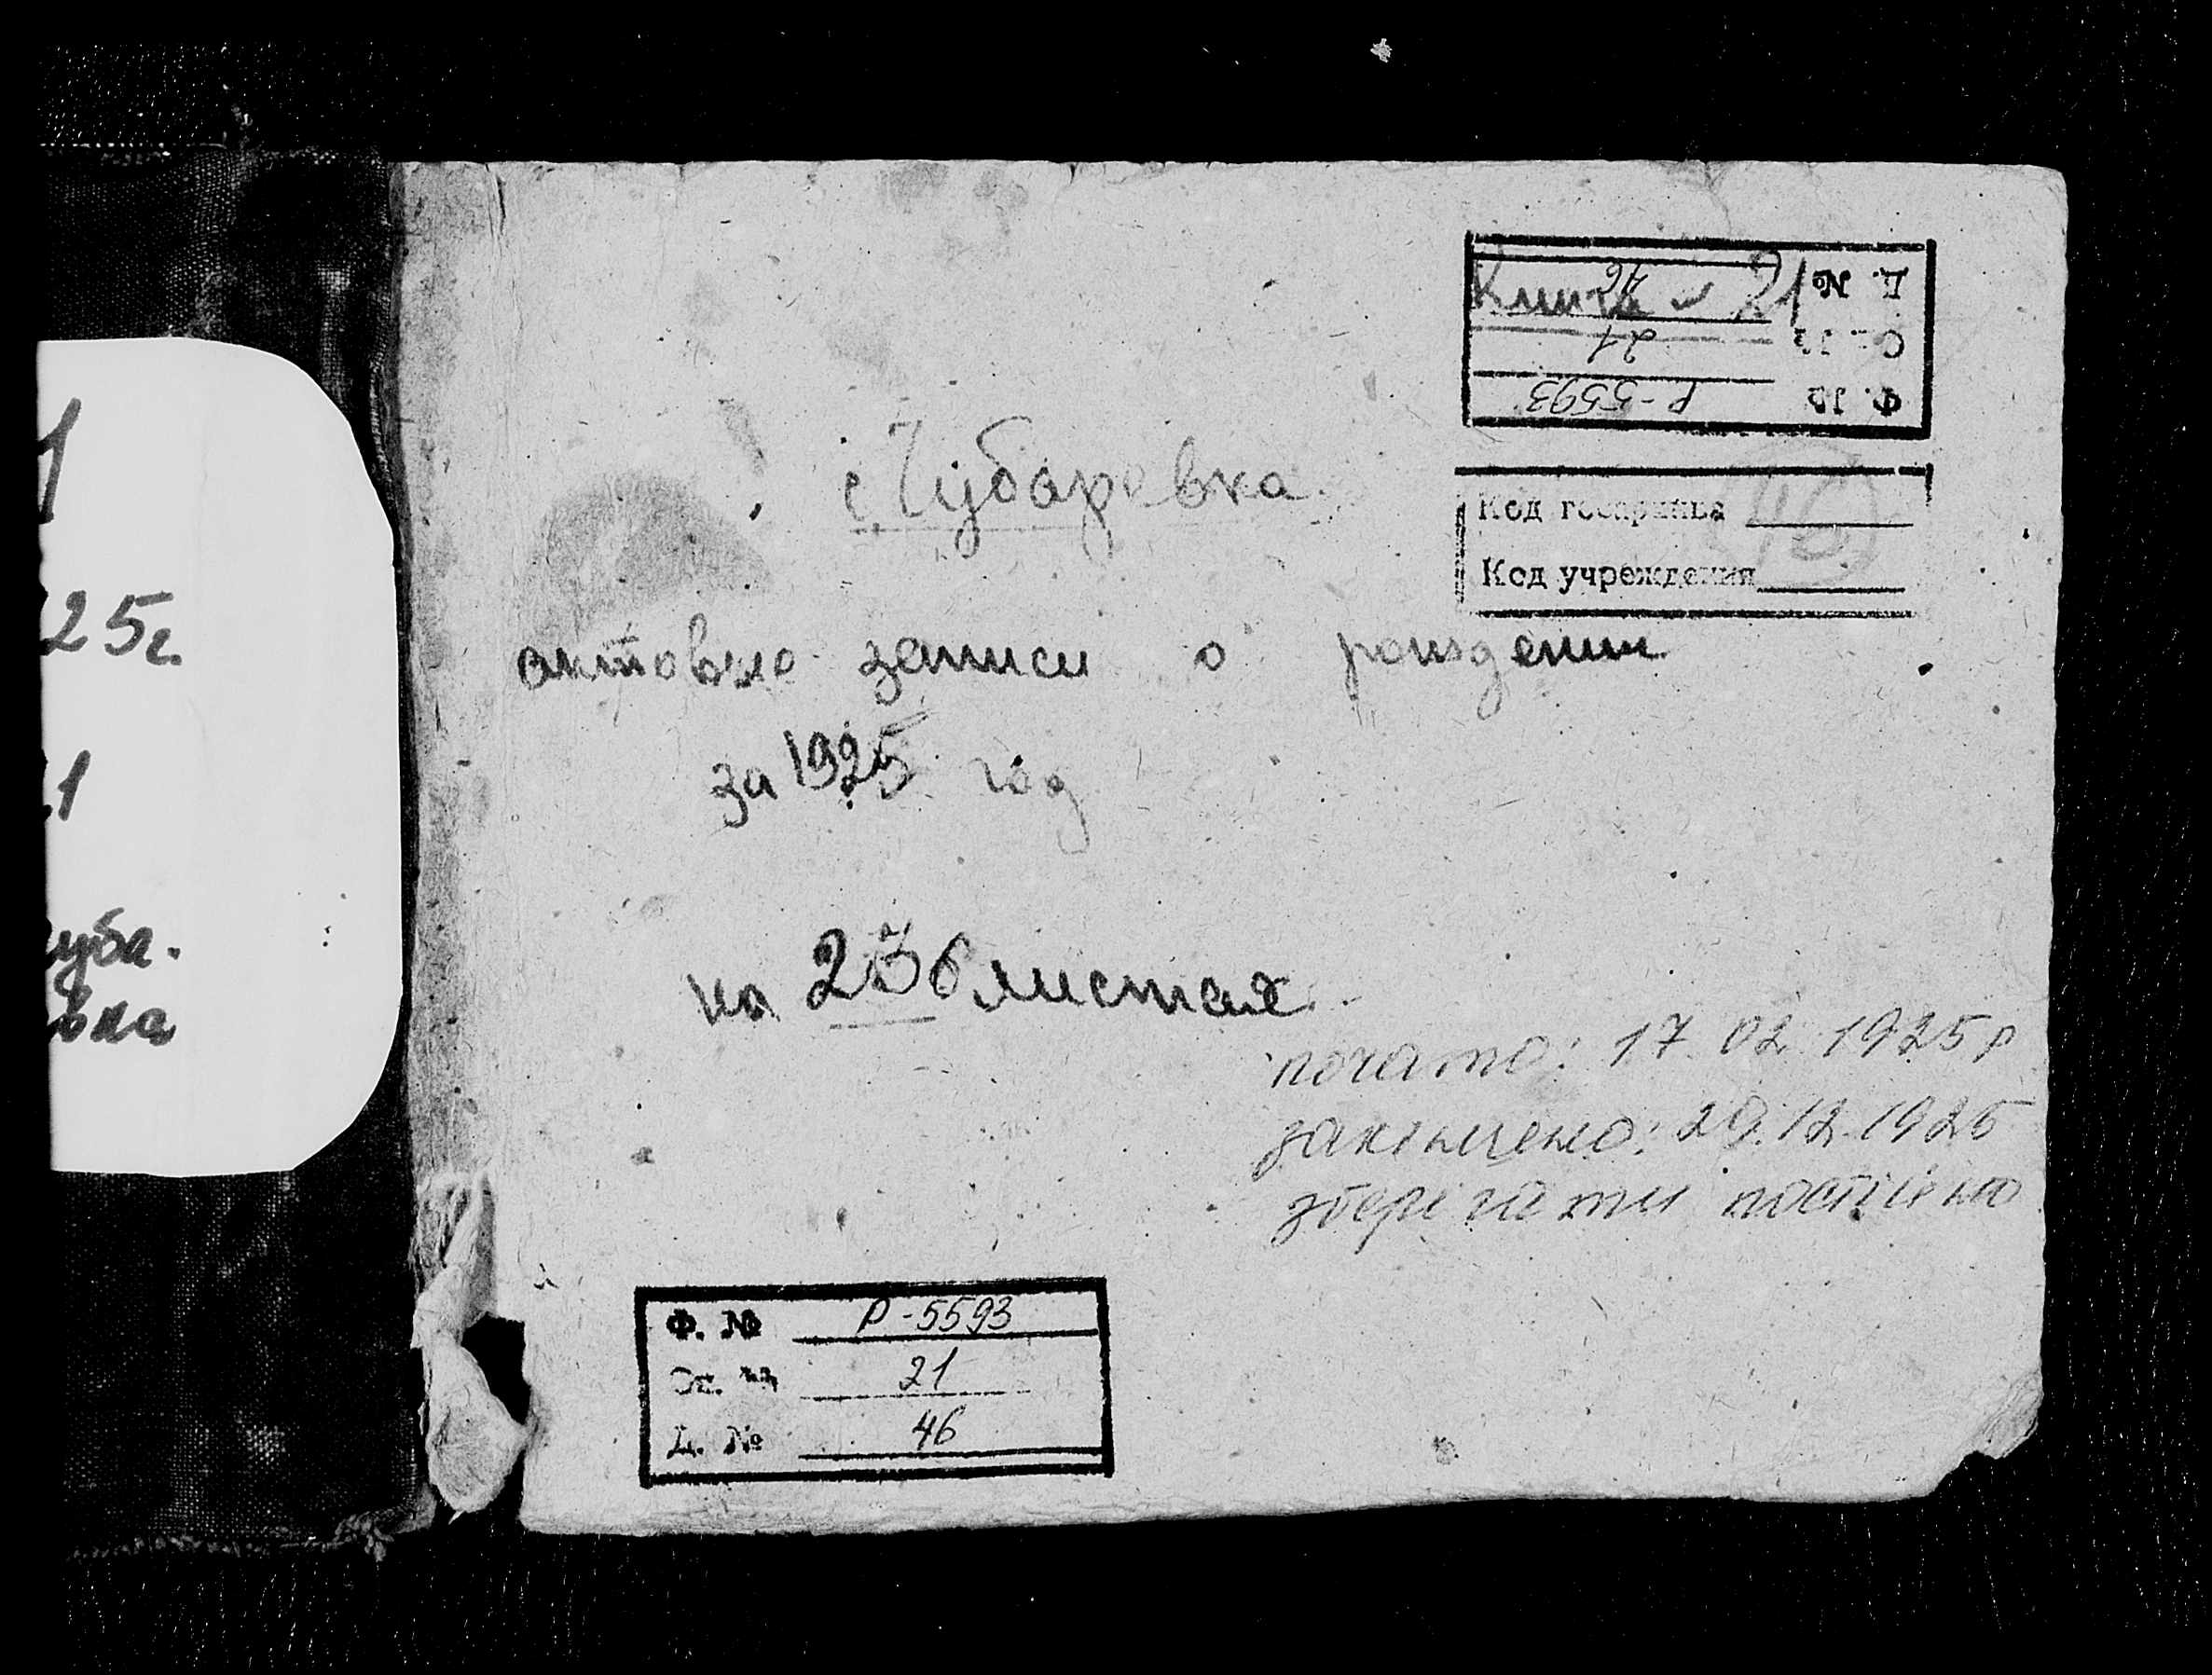 1
25г.
1
уба.
вка
Д. № 46
Книга № 21
Оп. № 21
Ф. № Р-5593
с. Чубаревка
Код госархива
46
Код учреждения
актовые записи о рождении
за 1925 год
на 236 листах
почато: 17.02.1925 р
закінчено: 29.12.1925
зберігати постійно
Ф. № Р-5593
Оп. № 21
Д. № 46